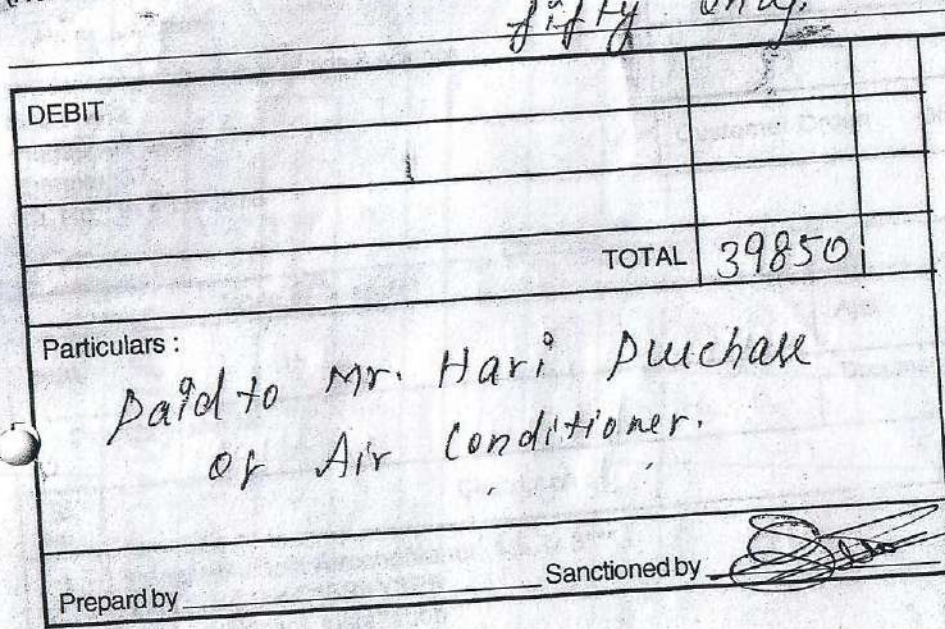 fifty only.
DEBIT
TOTAL 39850
Particulars :
paid to Mr. Hari purchase
of Air Conditioner.
Prepard by Sanctioned by